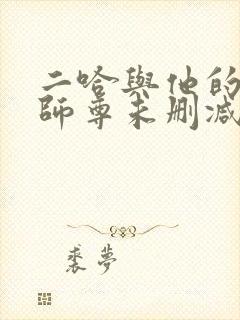 二哈與他的
師尊未刪減
裘夢